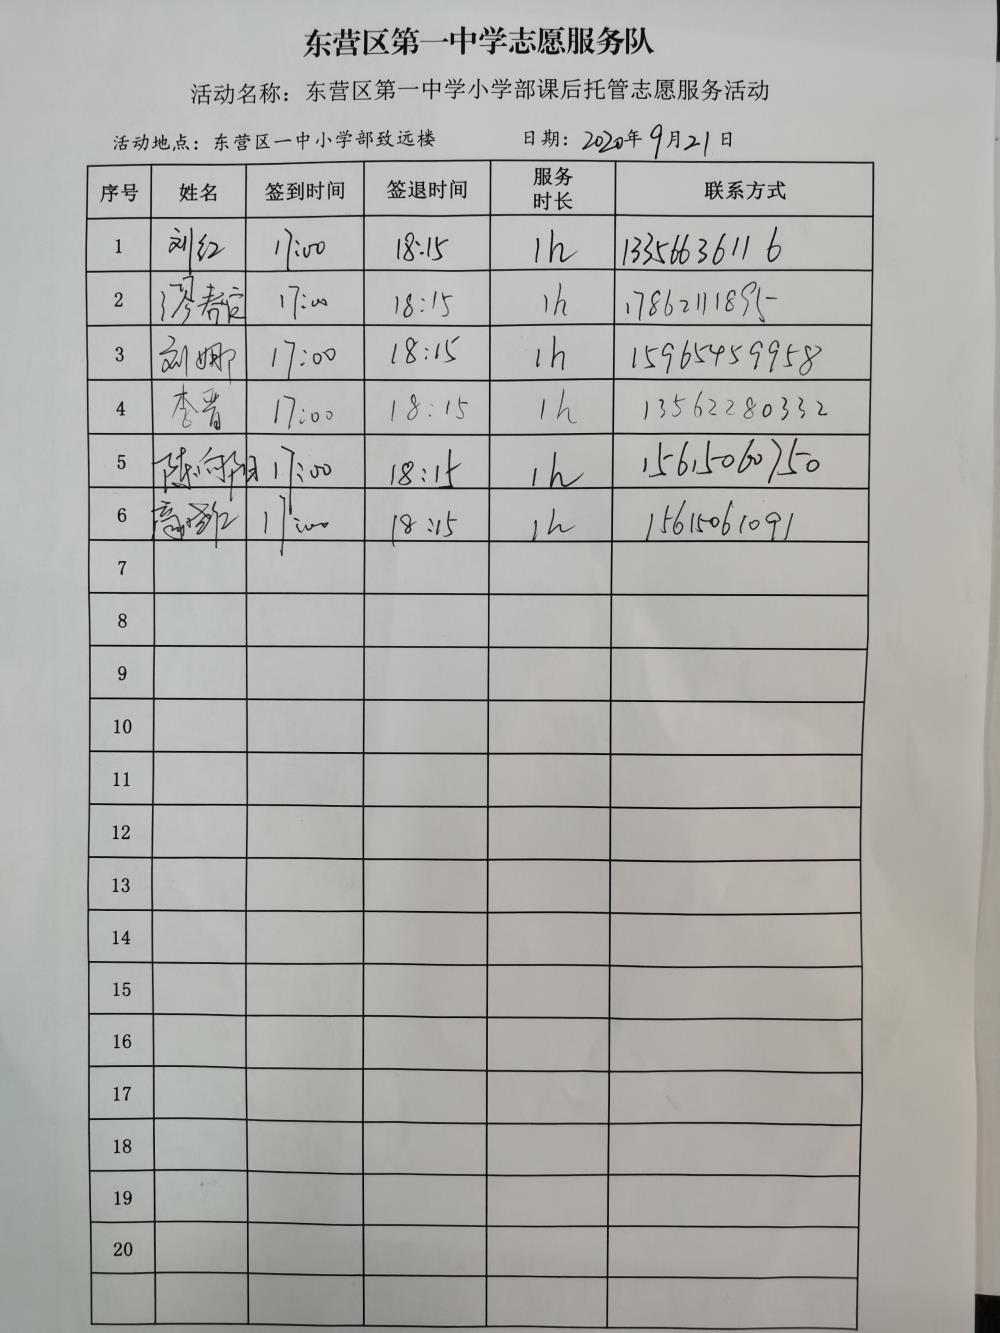 东营区第一中学志愿服务队
活动名称：东营区第一中学小学部课后托管志愿服务活动
活动地点：东营区一中小学部致远楼 日期：2020年9月21日
序号 姓名 签到时间 签退时间 服务时长 联系方式
1 刘红 17:00 18:15 1h 13356636116
2 廖春 17:00 18:15 1h 17862111895
3 刘娜 17:00 18:15 1h 15965459958
4 李晋 17:00 18:15 1h 13562280332
5 陈向阳 17:00 18:15 1h 15615060750
6 高红 17:00 18:15 1h 15615061091
7
8
9
10
11
12
13
14
15
16
17
18
19
20